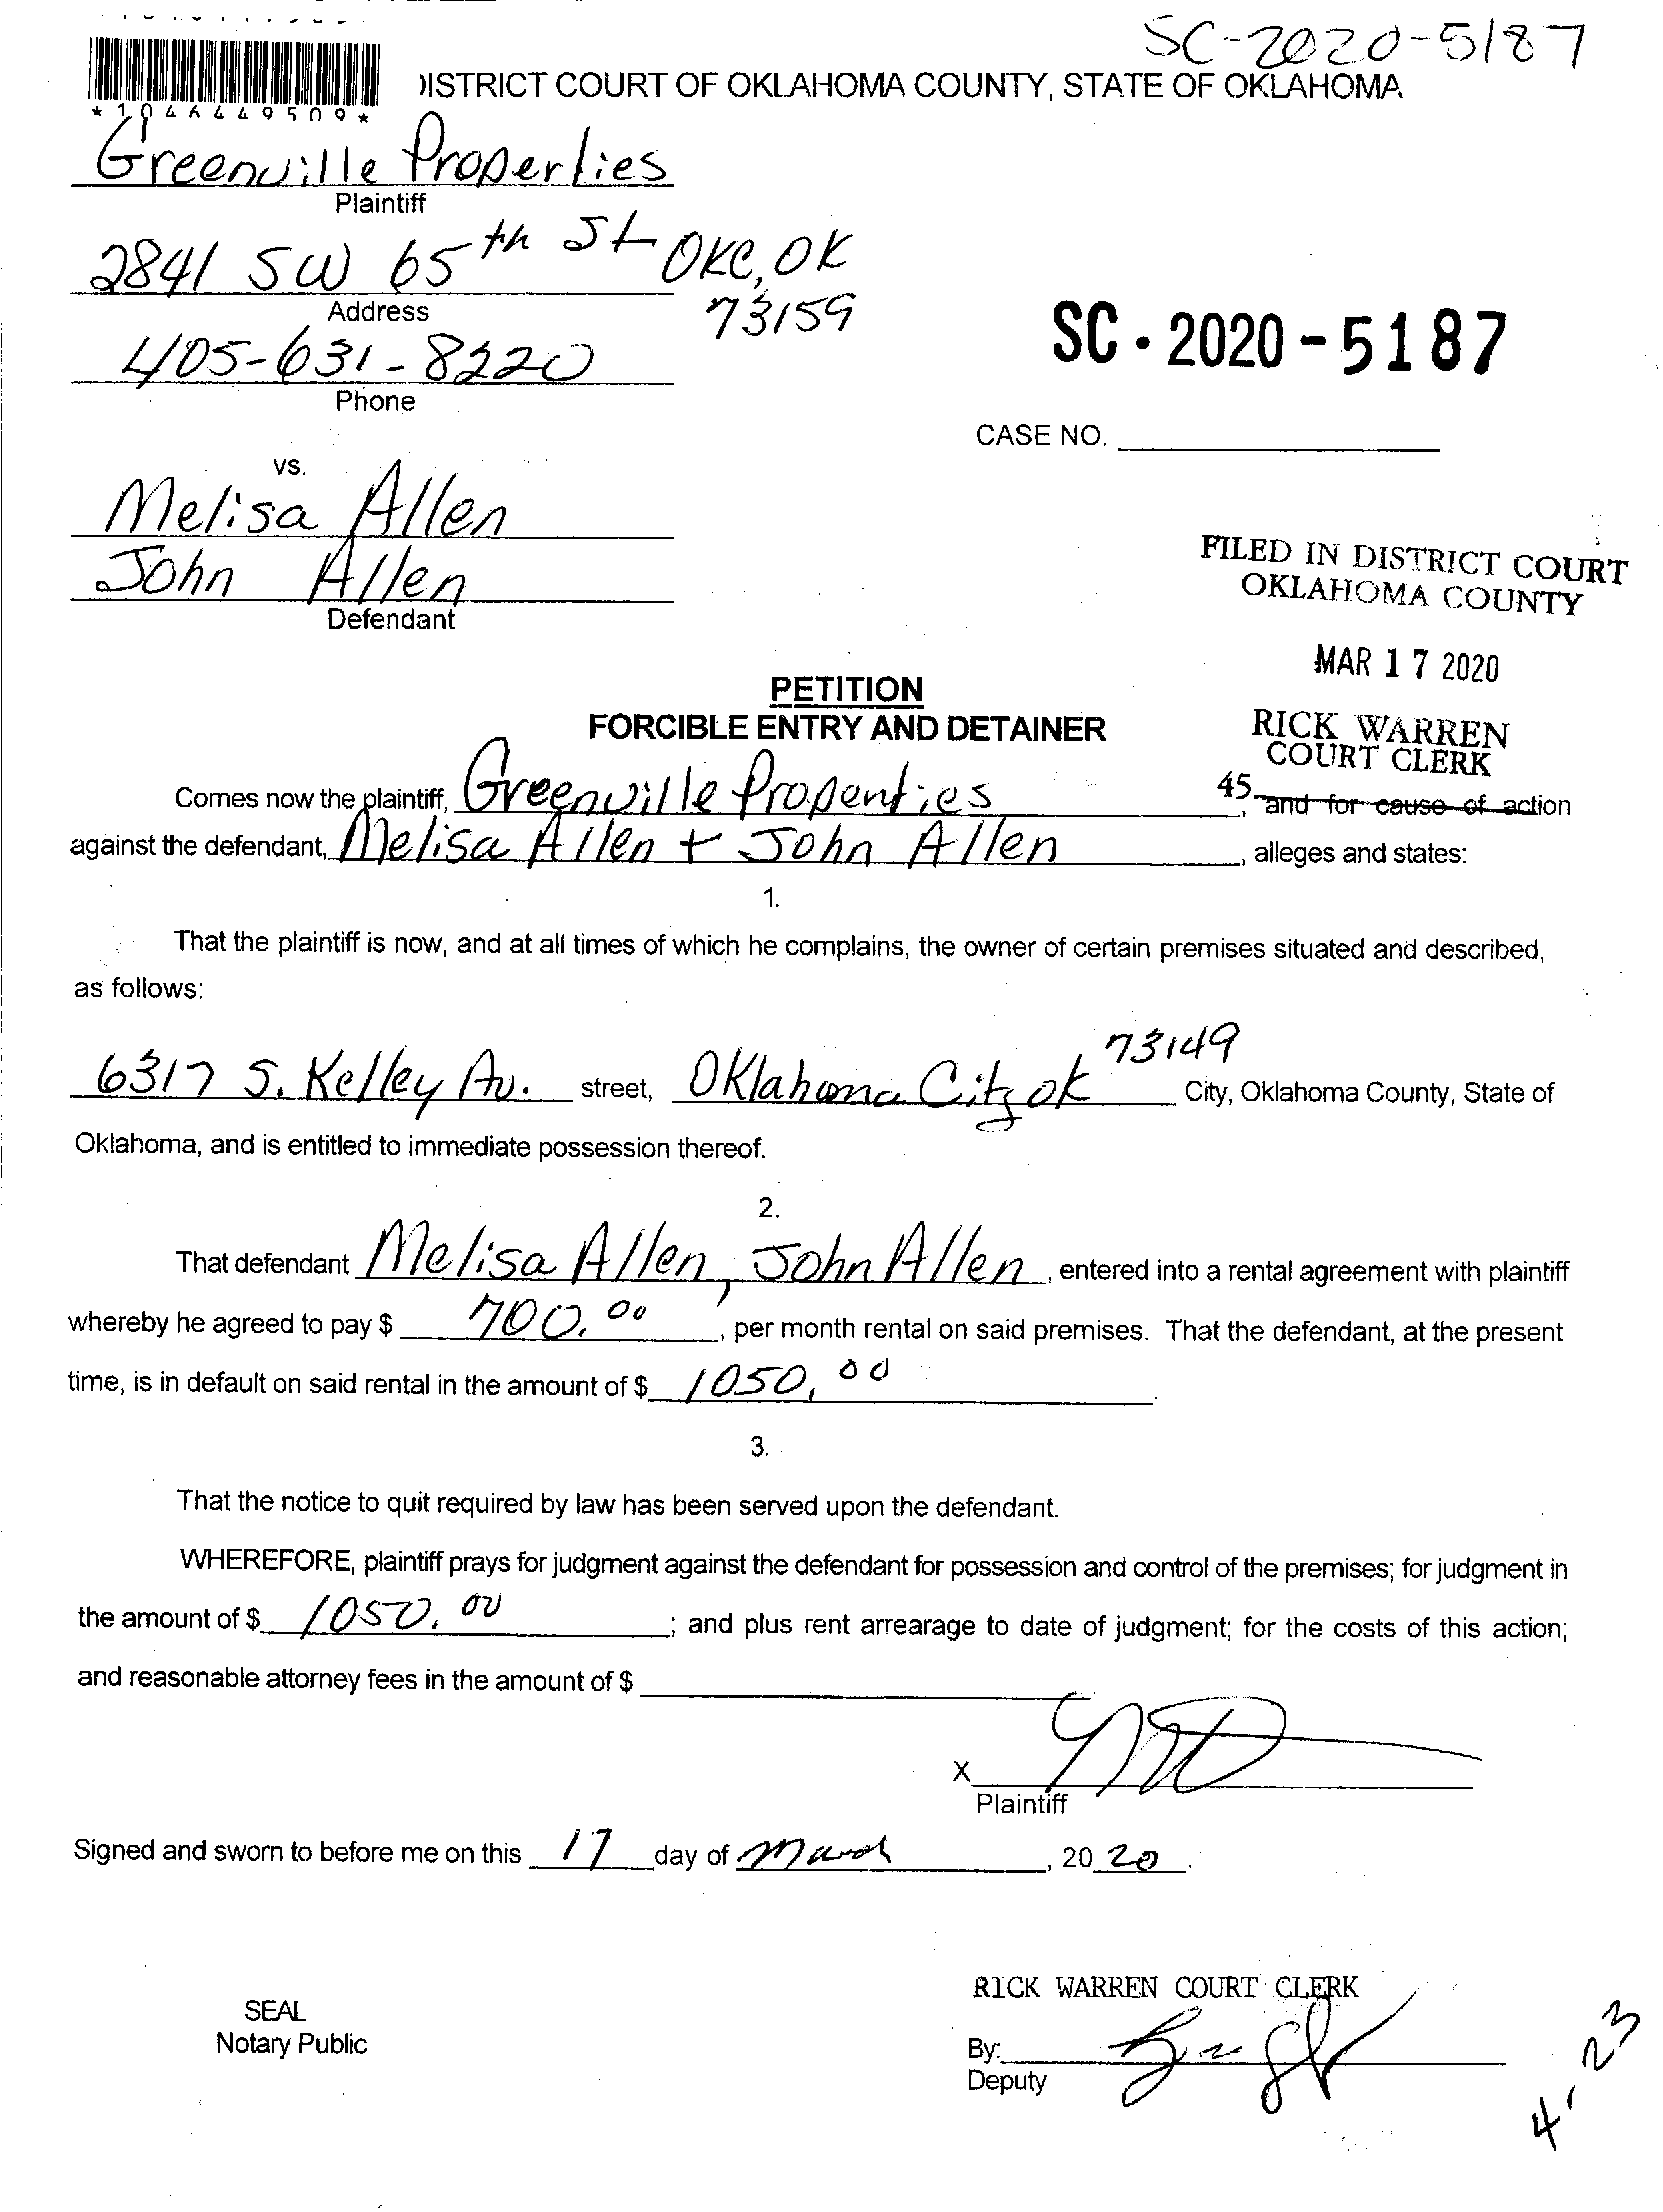 SC-2020-5187
DISTRICT COURT OF OKLAHOMA COUNTY, STATE OF OKLAHOMA
*1046449509*
Greenville Properties
Plaintiff
2841 SW 65th St OKC, OK
73159
Address
405-631-8220
Phone
SC-2020-5187
CASE NO.
vs.
Melisa Allen
John Allen
Defendant
FILED IN DISTRICT COURT
OKLAHOMA COUNTY
MAR 17 2020
RICK WARREN
COURT CLERK
45
PETITION
FORCIBLE ENTRY AND DETAINER
Comes now the plaintiff, Greenville Properties, and for cause of action
against the defendant, Melisa Allen + John Allen, alleges and states:
1.
That the plaintiff is now, and at all times of which he complains, the owner of certain premises situated and described,
as follows:
6317 S. Kelley Av. street, Oklahoma City OK 73149 City, Oklahoma County, State of
Oklahoma, and is entitled to immediate possession thereof.
2.
That defendant Melisa Allen, John Allen, entered into a rental agreement with plaintiff
whereby he agreed to pay $ 700.00, per month rental on said premises. That the defendant, at the present
time, is in default on said rental in the amount of $ 1050.00.
3.
That the notice to quit required by law has been served upon the defendant.
WHEREFORE, plaintiff prays for judgment against the defendant for possession and control of the premises; for judgment in
the amount of $ 1050.00; and plus rent arrearage to date of judgment; for the costs of this action;
and reasonable attorney fees in the amount of $
X
Plaintiff
Signed and sworn to before me on this 17 day of March, 2020.
RICK WARREN COURT CLERK
SEAL
Notary Public
By:
Deputy
4-23